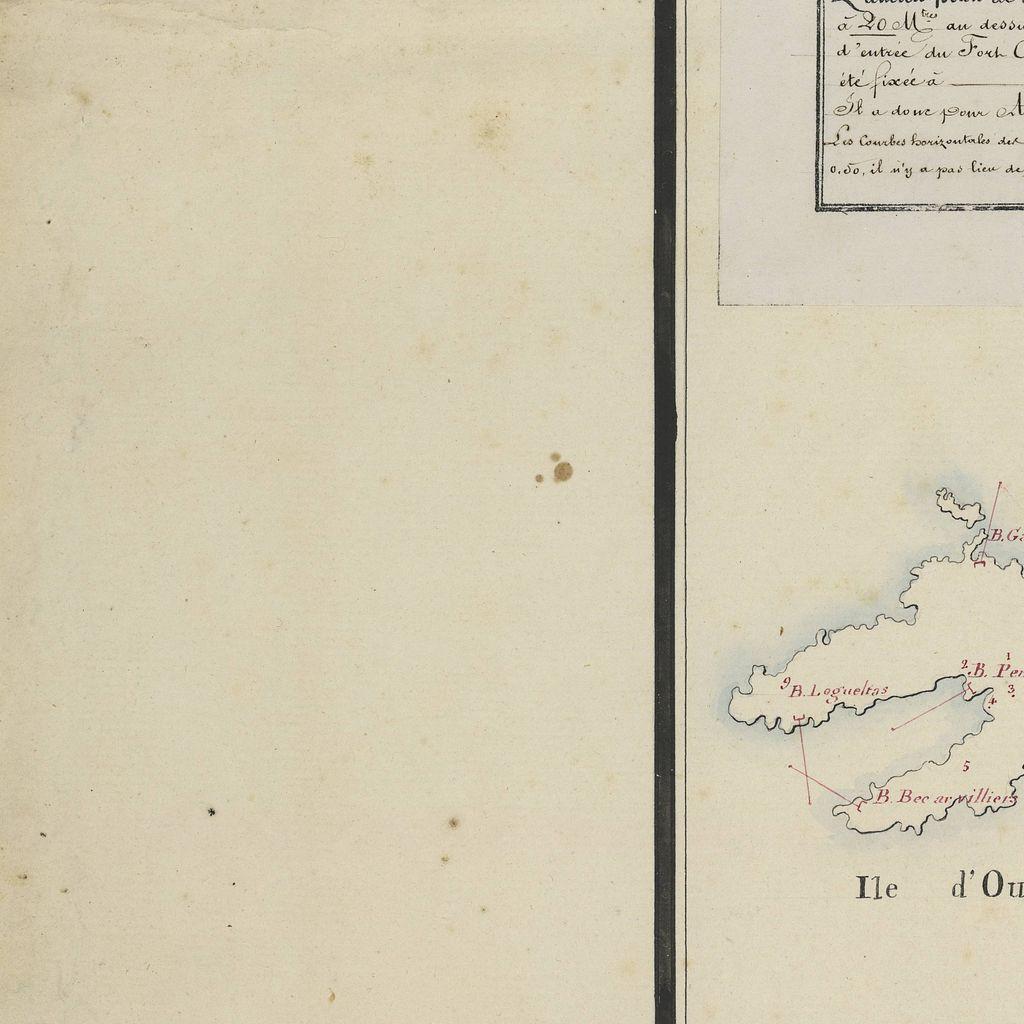 à 20 M.tres au dessu
d'entrée du Fort C
été fixée à
Il a donc pour A
Les Courbes horizontales des
0.50, il n'y a pas lieu de
B. Ga
1
2. B. Pen
3.
9
B. Logueltas
4
5
B. Becarvilliers
Ile d'Ou